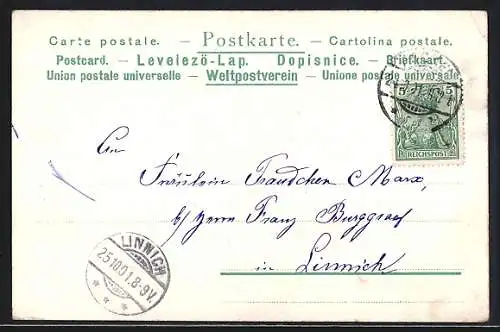 Carte postale. — Postkarte. — Cartolina postale.
Postcard. — Levelezö-Lap. Dopisnice. — Briefkaart.
Union postale universelle — Weltpostverein — Unione postale universale
5
REICHSPOST
An
Fräulein Traudchen Marx,
b/ Herrn Franz Burggraef
in Linnich
LINNICH
25.10.01.8-9V.